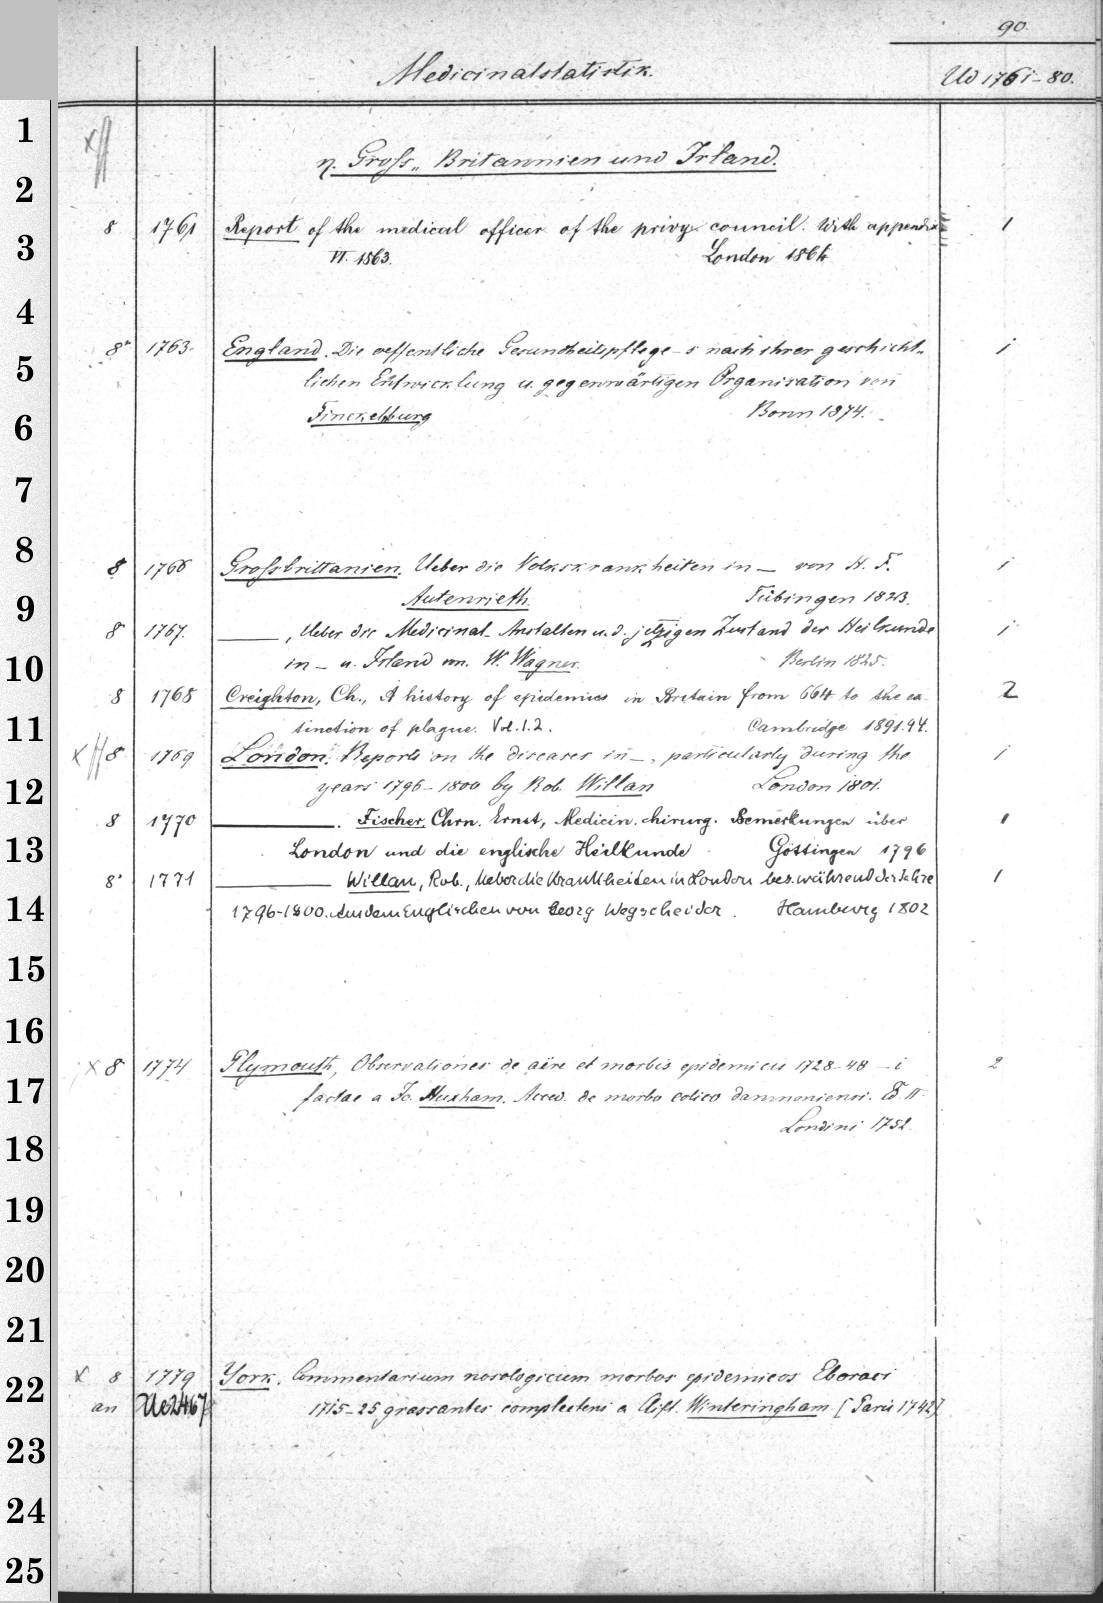 90.
Medicinalstatistik. Ud 1761-80.
1
η. Gross-Britannien und Irland.
2
8 1761 Report of the medical officer of the privy council. With appendix 1
3
VI. 1863. London 1864
4
8° 1763. England. Die oeffentliche Gesundheitspflege -s nach ihrer geschicht-
5
lichen Entwicklung u. gegenwärtigen Organisation von
6
Finckelnburg Bonn 1874.
7
8
8 1766 Grossbrittanien. Ueber die Volkskrankheiten in — von H. F. 1
9
Autenrieth. Tübingen 1823.
8 1767. ———, Ueber die Medicinal-Anstalten u. d. jetzigen Zustand der Heilkunde 1
10
in — u. Irland von W. Wagner. Berlin 1825.
8 1768 Creighton, Ch., A history of epidemics in Britain from 664 to the ex-
2
11
tinction of plague. Vol. 1.2. Cambridge 1891.94.
x 8 1769 London. Reports on the diseases in —, particularly during the 1
12
years 1796-1800 by Rob. Willan London 1801.
8 1770 ———. Fischer, Chrn. Ernst, Medicin. chirurg. Bemerkungen über 1
13
London und die englische Heilkunde Göttingen 1796
8° 1771 ——— Willan, Rob., Ueber die Krankheiten in London bes. während der Jahre 1
14
1796-1800. Aus dem Englischen von Georg Wegscheider. Hamburg 1802
15
16
x 8 1774 Plymouth, Observationes de aëre et morbis epidemicis 1728-48 — i 2
17
factae a Jo. Huxham. Acced. de morbo colico damnoniensi. Ed. II
18
Londini 1752.
19
20
21
x 8 1779 York. Commentarium nosologicum morbos epidemicos Eboraci
22
an Ue2467 1715-25 grassantes complectens a Clift. Winteringham [Paris 1742]
23
24
25